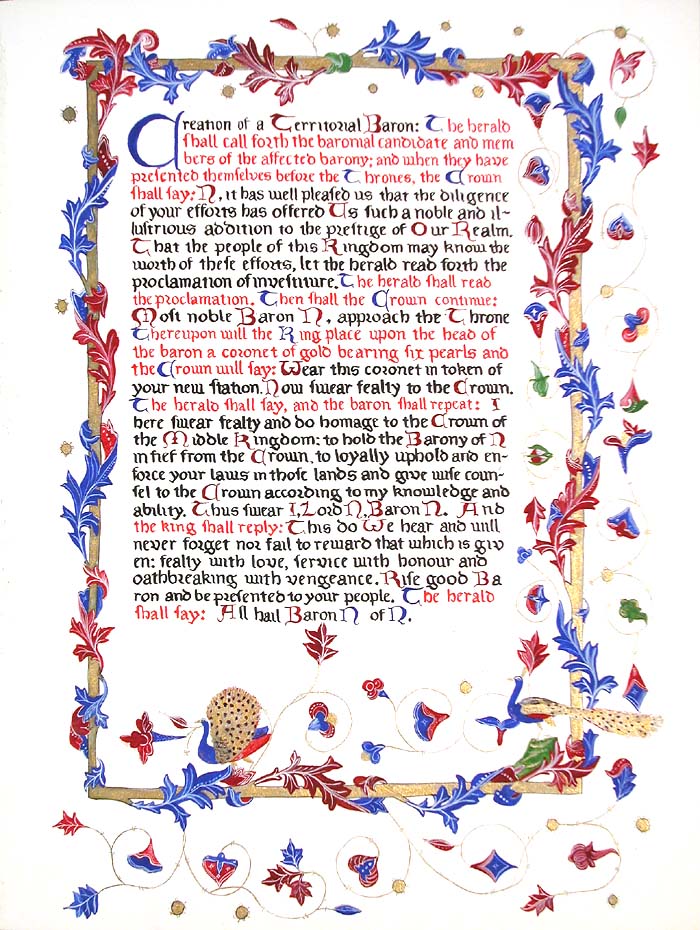 Creation of a Territorial Baron: The herald
ſhall call forth the baronial candidate and mem
bers of the affected barony; and when they have
preſented themſelves before the Thrones, the Crown
ſhall ſay: N, it has well pleaſed us that the diligence
of your efforts has offered Us ſuch a noble and il-
luſtrious addition to the preſtige of Our Realm.
That the people of this Kingdom may know the
worth of theſe efforts, let the herald read forth the
proclamation of inveſture. The herald ſhall read
the proclamation. Then ſhall the Crown continue:
Moſt noble Baron N, approach the Throne
Thereupon will the King place upon the head of
the baron a coronet of gold bearing ſix pearls and
the Crown will ſay: Wear this coronet in token of
your new ſtation. Now ſwear fealty to the Crown.
The herald ſhall ſay, and the baron ſhall repeat: I
here ſwear fealty and do homage to the Crown of
the Middle Kingdom: to hold the Barony of N
in fief from the Crown, to loyally uphold and en-
force your laws in thoſe lands and give wiſe coun-
ſel to the Crown according to my knowledge and
ability. Thus ſwear I, Lord N, Baron N. And
the king ſhall reply: This do We hear and will
never forget nor fail to reward that which is giv
en: fealty with love, ſervice with honour and
oathbreaking with vengeance. Riſe good Ba
ron and be preſented to your people. The herald
ſhall ſay: All hail Baron N of N.